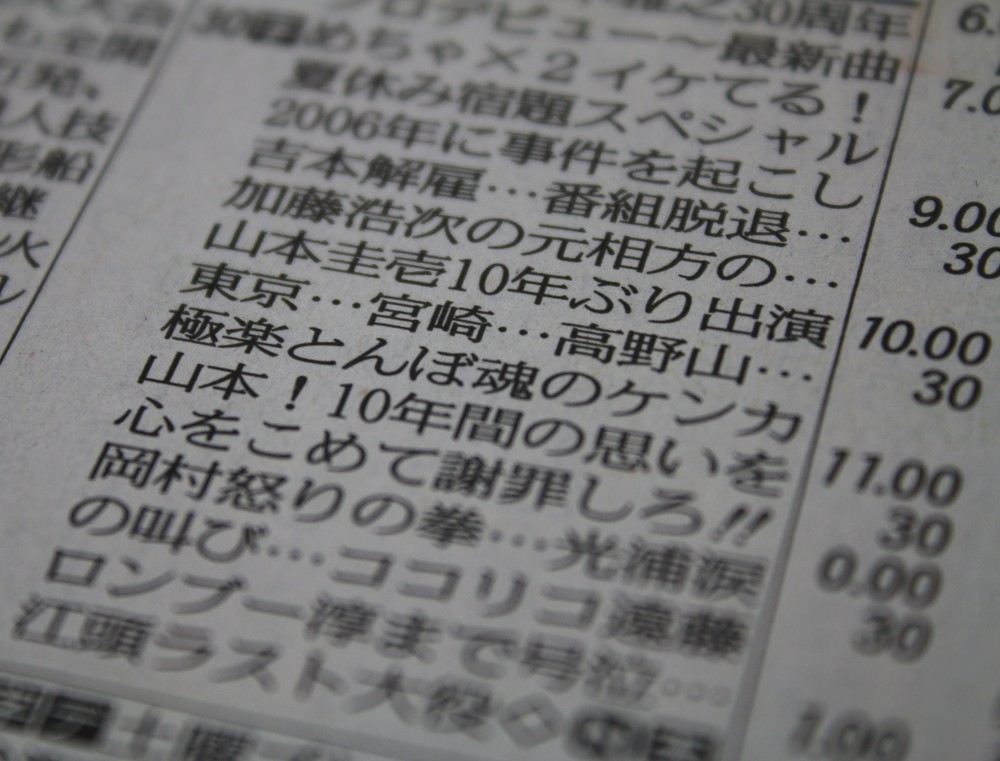 30周年
ロデビュー〜最新曲
30 めちゃ×2イケてる！
夏休み宿題スペシャル
2006年に事件を起こし
吉本解雇…番組脱退…
加藤浩次の元相方の…
山本圭壱10年ぶり出演
東京…宮崎…高野山…
極楽とんぼ魂のケンカ
山本！10年間の思いを
心をこめて謝罪しろ!!
岡村怒りの拳…光浦涙
の叫び…ココリコ遠藤
ロンブー淳まで号泣…
江頭ラスト大役◇
も全開
発、
人技
形船
継
火
ル
6.
7.0
9.00
30
10.00
30
11.00
30
0.00
30
1.00